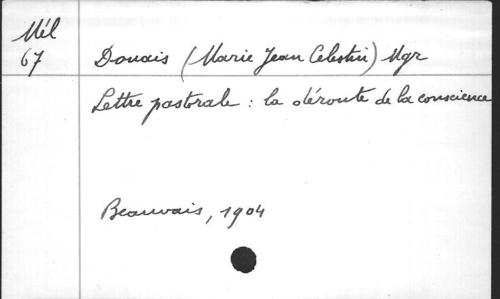 Mél
67
Douais (Marie Jean Celestin) Mgr
Lettre pastorale : la déroute de la conscience
Beauvais, 1904